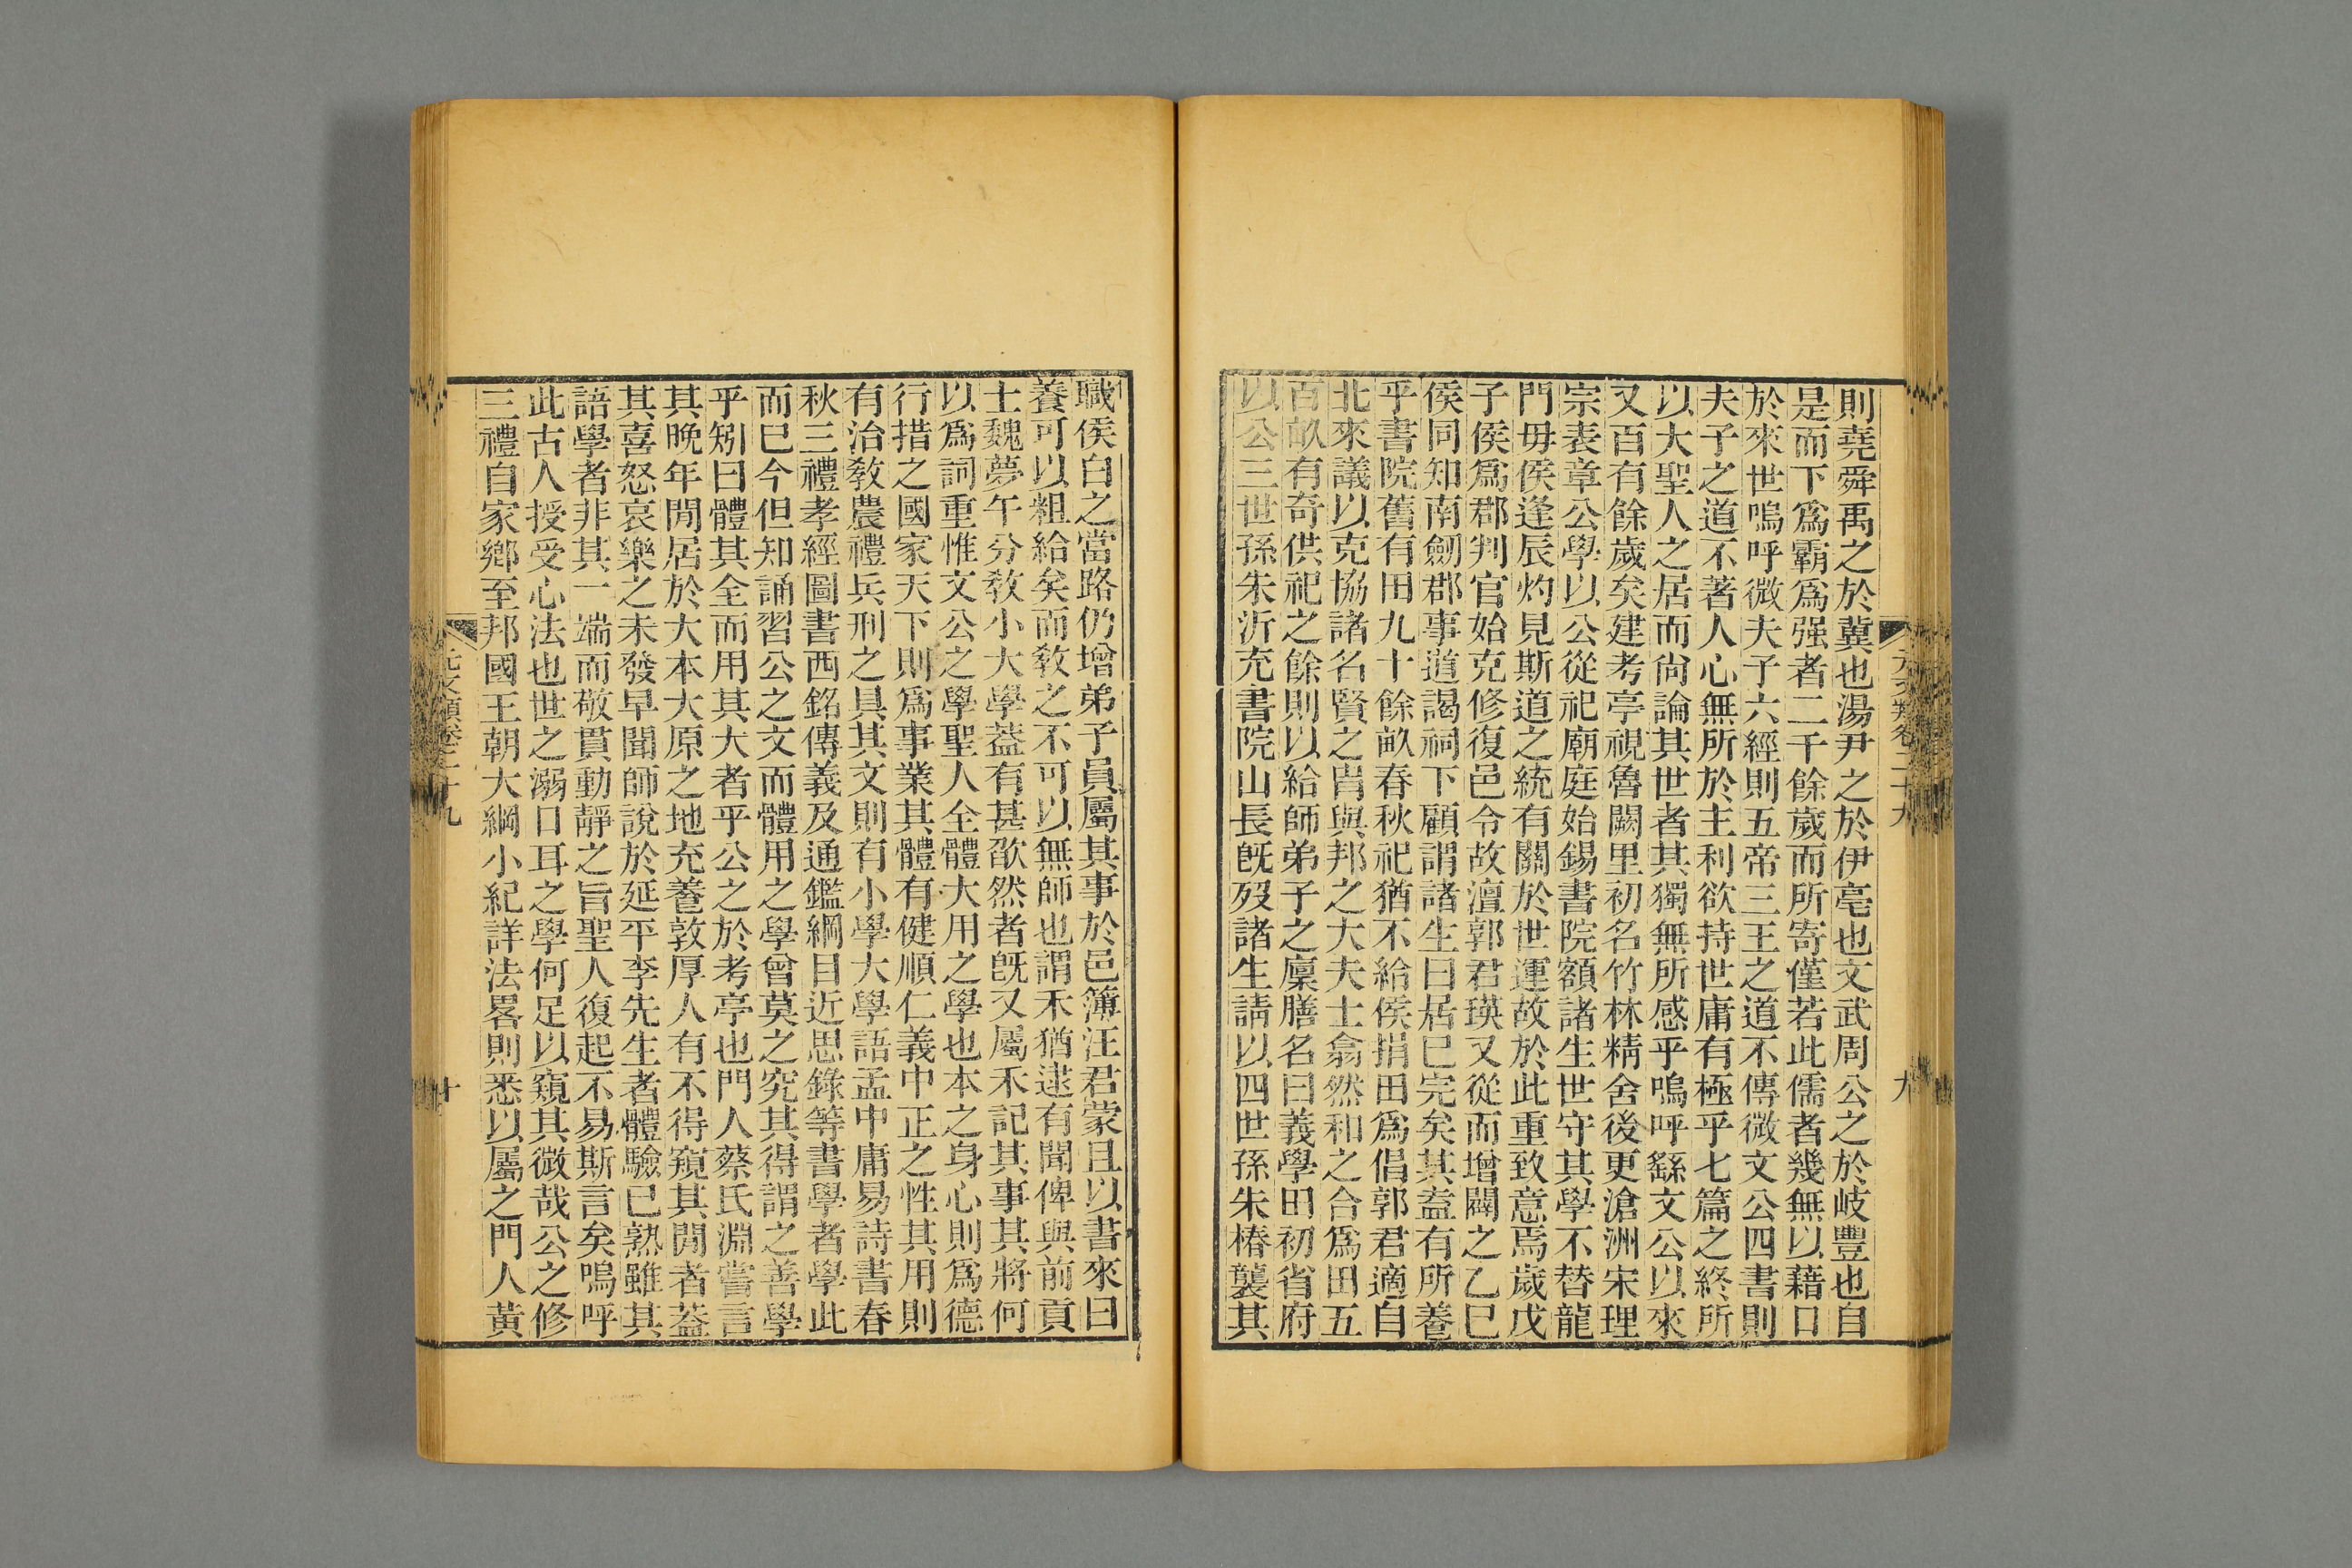 元文類卷二十九
九
則堯舜禹之於冀也湯尹之於伊亳也文武周公之於岐豐也自
是而下爲霸爲强者二千餘歲而所寄僅若此儒者幾無以藉口
於來世嗚呼微夫子六經則五帝三王之道不傳微文公四書則
夫子之道不著人心無所於主利欲持世庸有極乎七篇之終所
以大聖人之居而尙論其世者其獨無所感乎嗚呼繇文公以來
又百有餘歲矣建考亭視魯闕里初名竹林精舍後更滄洲宋理
宗表章公學以公從祀廟庭始錫書院額諸生世守其學不替龍
門毋侯逢辰灼見斯道之統有關於世運故於此重致意焉歲戊
子侯爲郡判官始克修復邑令故澶郭君瑛又從而增闢之乙巳
侯同知南劒郡事道謁祠下顧謂諸生曰居已完矣其盍有所養
乎書院舊有田九十餘畝春秋祀猶不給侯捐田爲倡郭君適自
北來議以克協諸名賢之胄與邦之大夫士翕然和之合爲田五
百畝有奇供祀之餘則以給師弟子之廩膳名曰義學田初省府
以公三世孫朱沂充書院山長旣歿諸生請以四世孫朱椿襲其
職侯白之當路仍增弟子員屬其事於邑簿汪君蒙且以書來曰
養可以粗給矣而敎之不可以無師也謂禾猶逮有聞俾與前貢
士魏夢午分敎小大學葢有甚歆然者旣又屬禾記其事其將何
以爲詞重惟文公之學聖人全體大用之學也本之身心則爲德
行措之國家天下則爲事業其體有健順仁義中正之性其用則
有治敎農禮兵刑之具其文則有小學大學語孟中庸易詩書春
秋三禮孝經圖書西銘傳義及通鑑綱目近思錄等書學者學此
而已今但知誦習公之文而體用之學曾莫之究其得謂之善學
乎矧曰體其全而用其大者乎公之於考亭也門人蔡氏淵嘗言
其晚年閒居於大本大原之地充養敦厚人有不得窺其閒者葢
其喜怒哀樂之未發早聞師說於延平李先生者體驗已熟雖其
語學者非其一端而敬貫動靜之旨聖人復起不易斯言矣嗚呼
此古人授受心法也世之溺口耳之學何足以窺其微哉公之修
三禮自家鄕至邦國王朝大綱小紀詳法畧則悉以屬之門人黃
元文類卷二十九
十